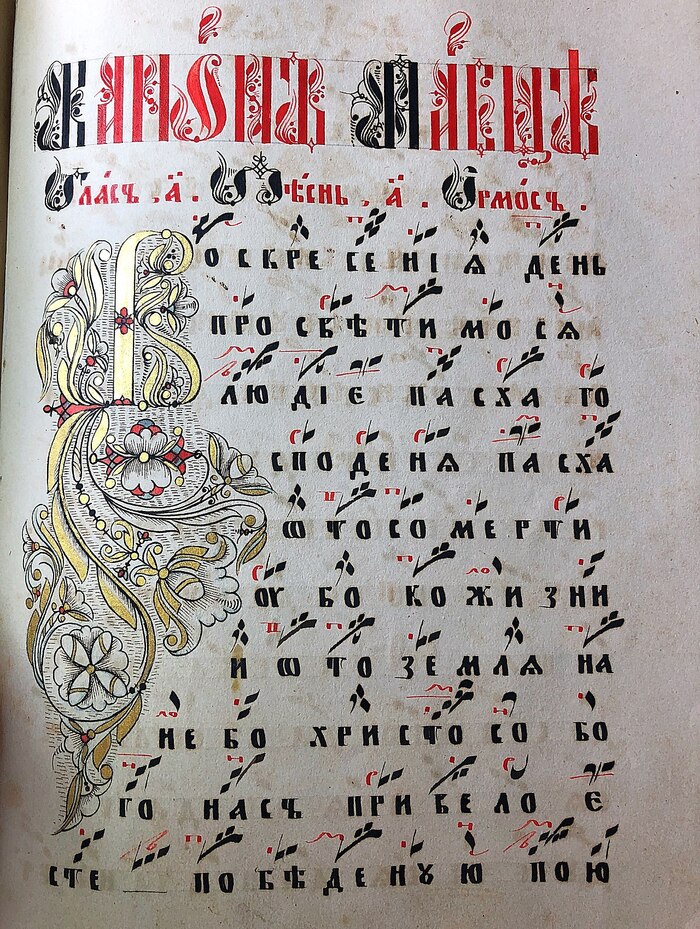 Канѡ́нъ па́сцѣ
Гла́съ, а҃. Пѣ́снь, а҃. Ірмо́съ.
Воскресениѧ день
просвѣтимосѧ
людїе пасха го
споденѧ пасха
ѿтосомерти
оубо кожизни
и ѿто землѧ на
небо христосо бо
го насъ привело є
сте побѣденꙋю пою